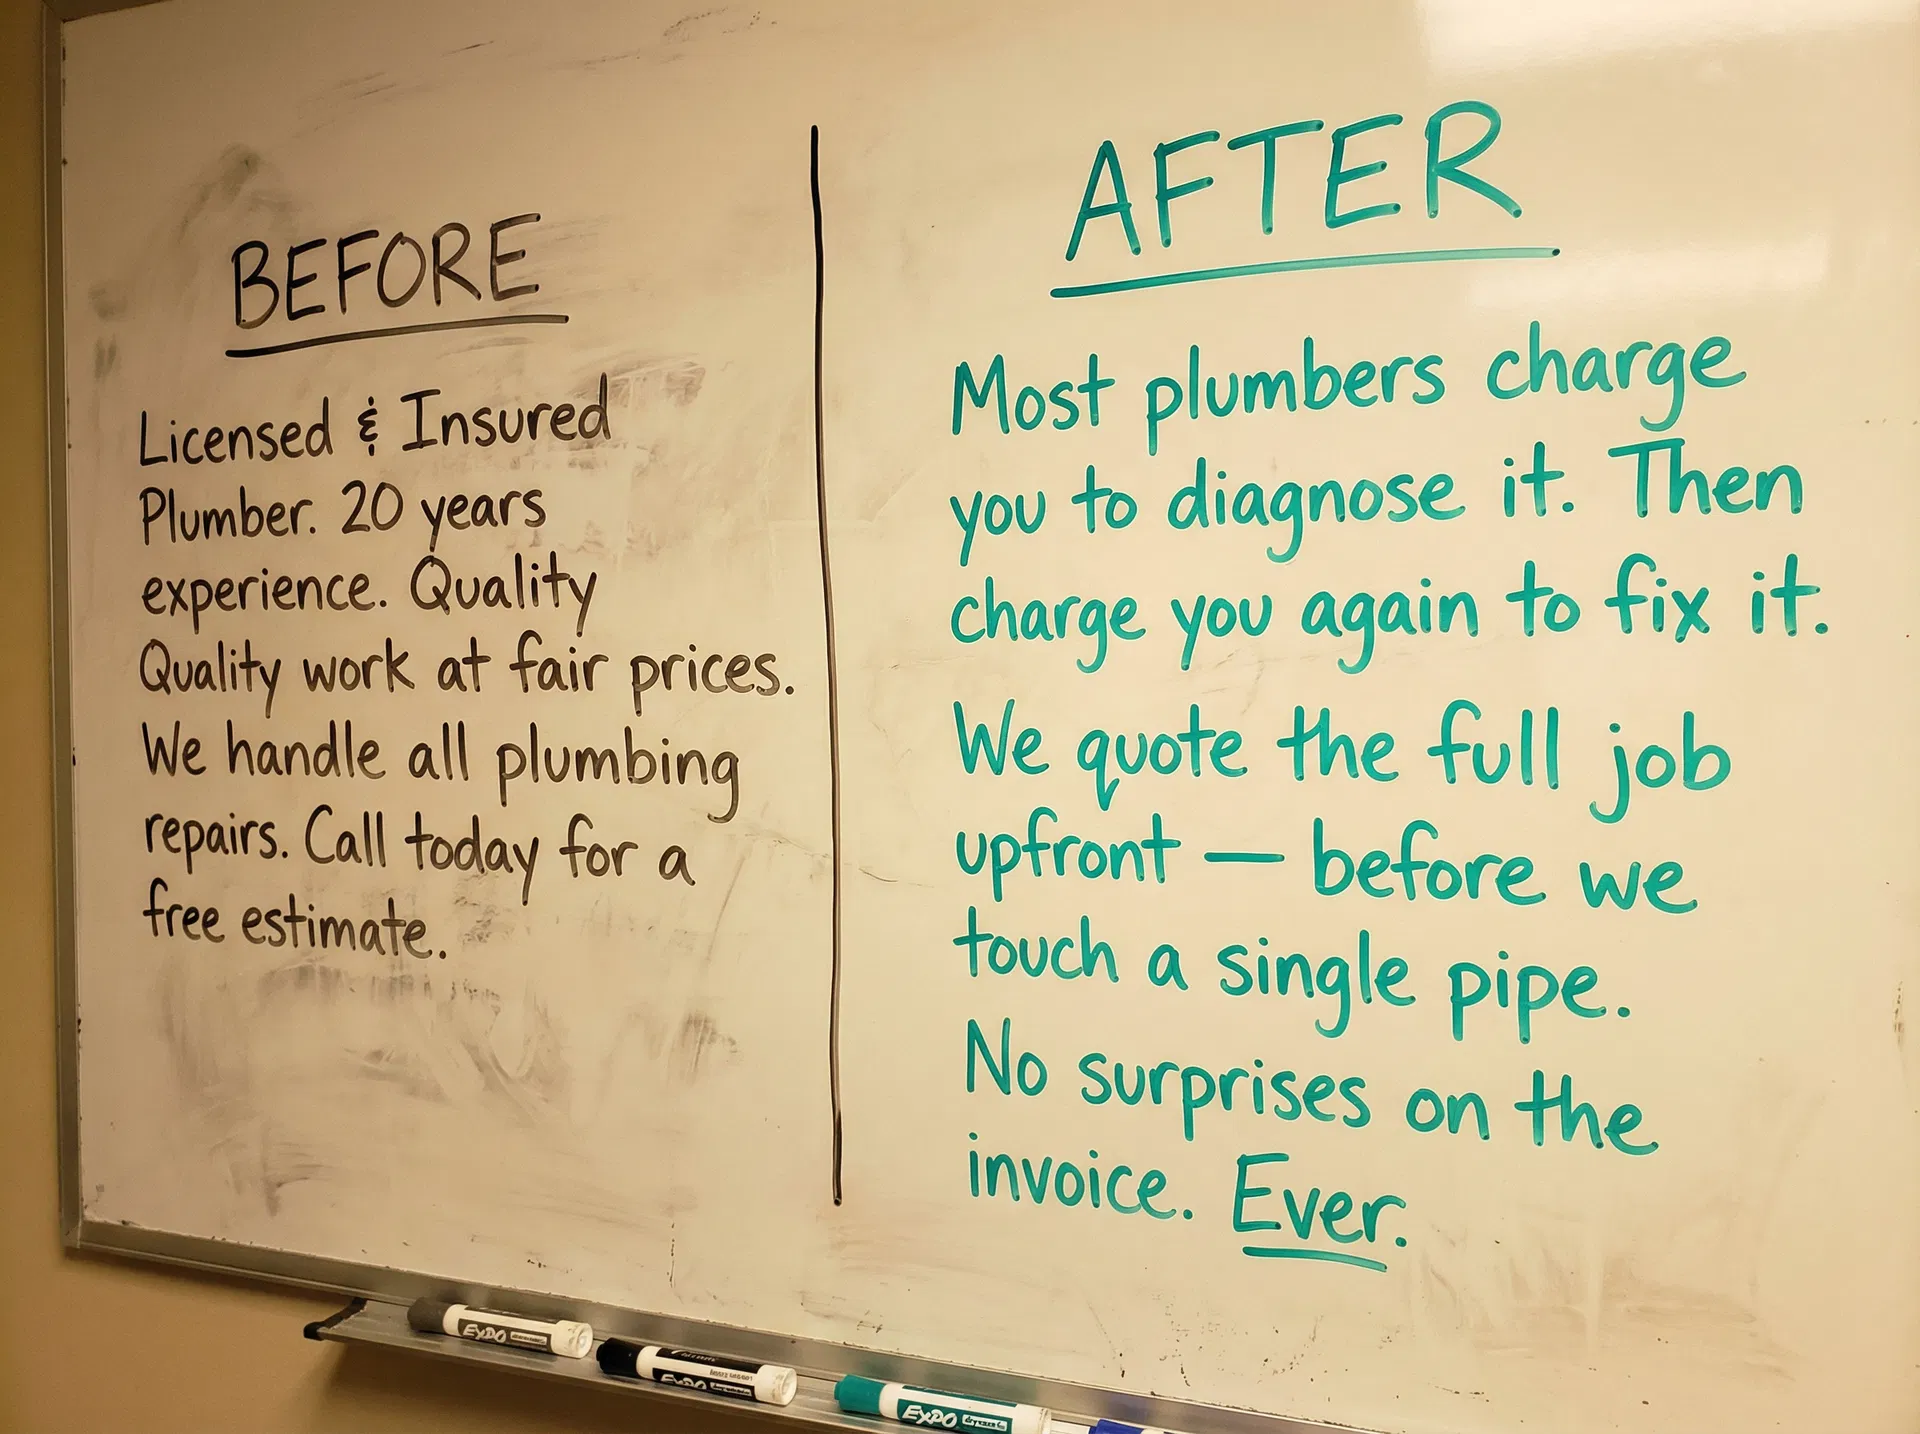 BEFORE
Licensed & Insured
Plumber. 20 years
experience. Quality
Quality work at fair prices.
We handle all plumbing
repairs. Call today for a
free estimate.
AFTER
Most plumbers charge
you to diagnose it. Then
charge you again to fix it.
We quote the full job
upfront — before we
touch a single pipe.
No surprises on the
invoice. Ever.
EXPO
EXPO
EXPO